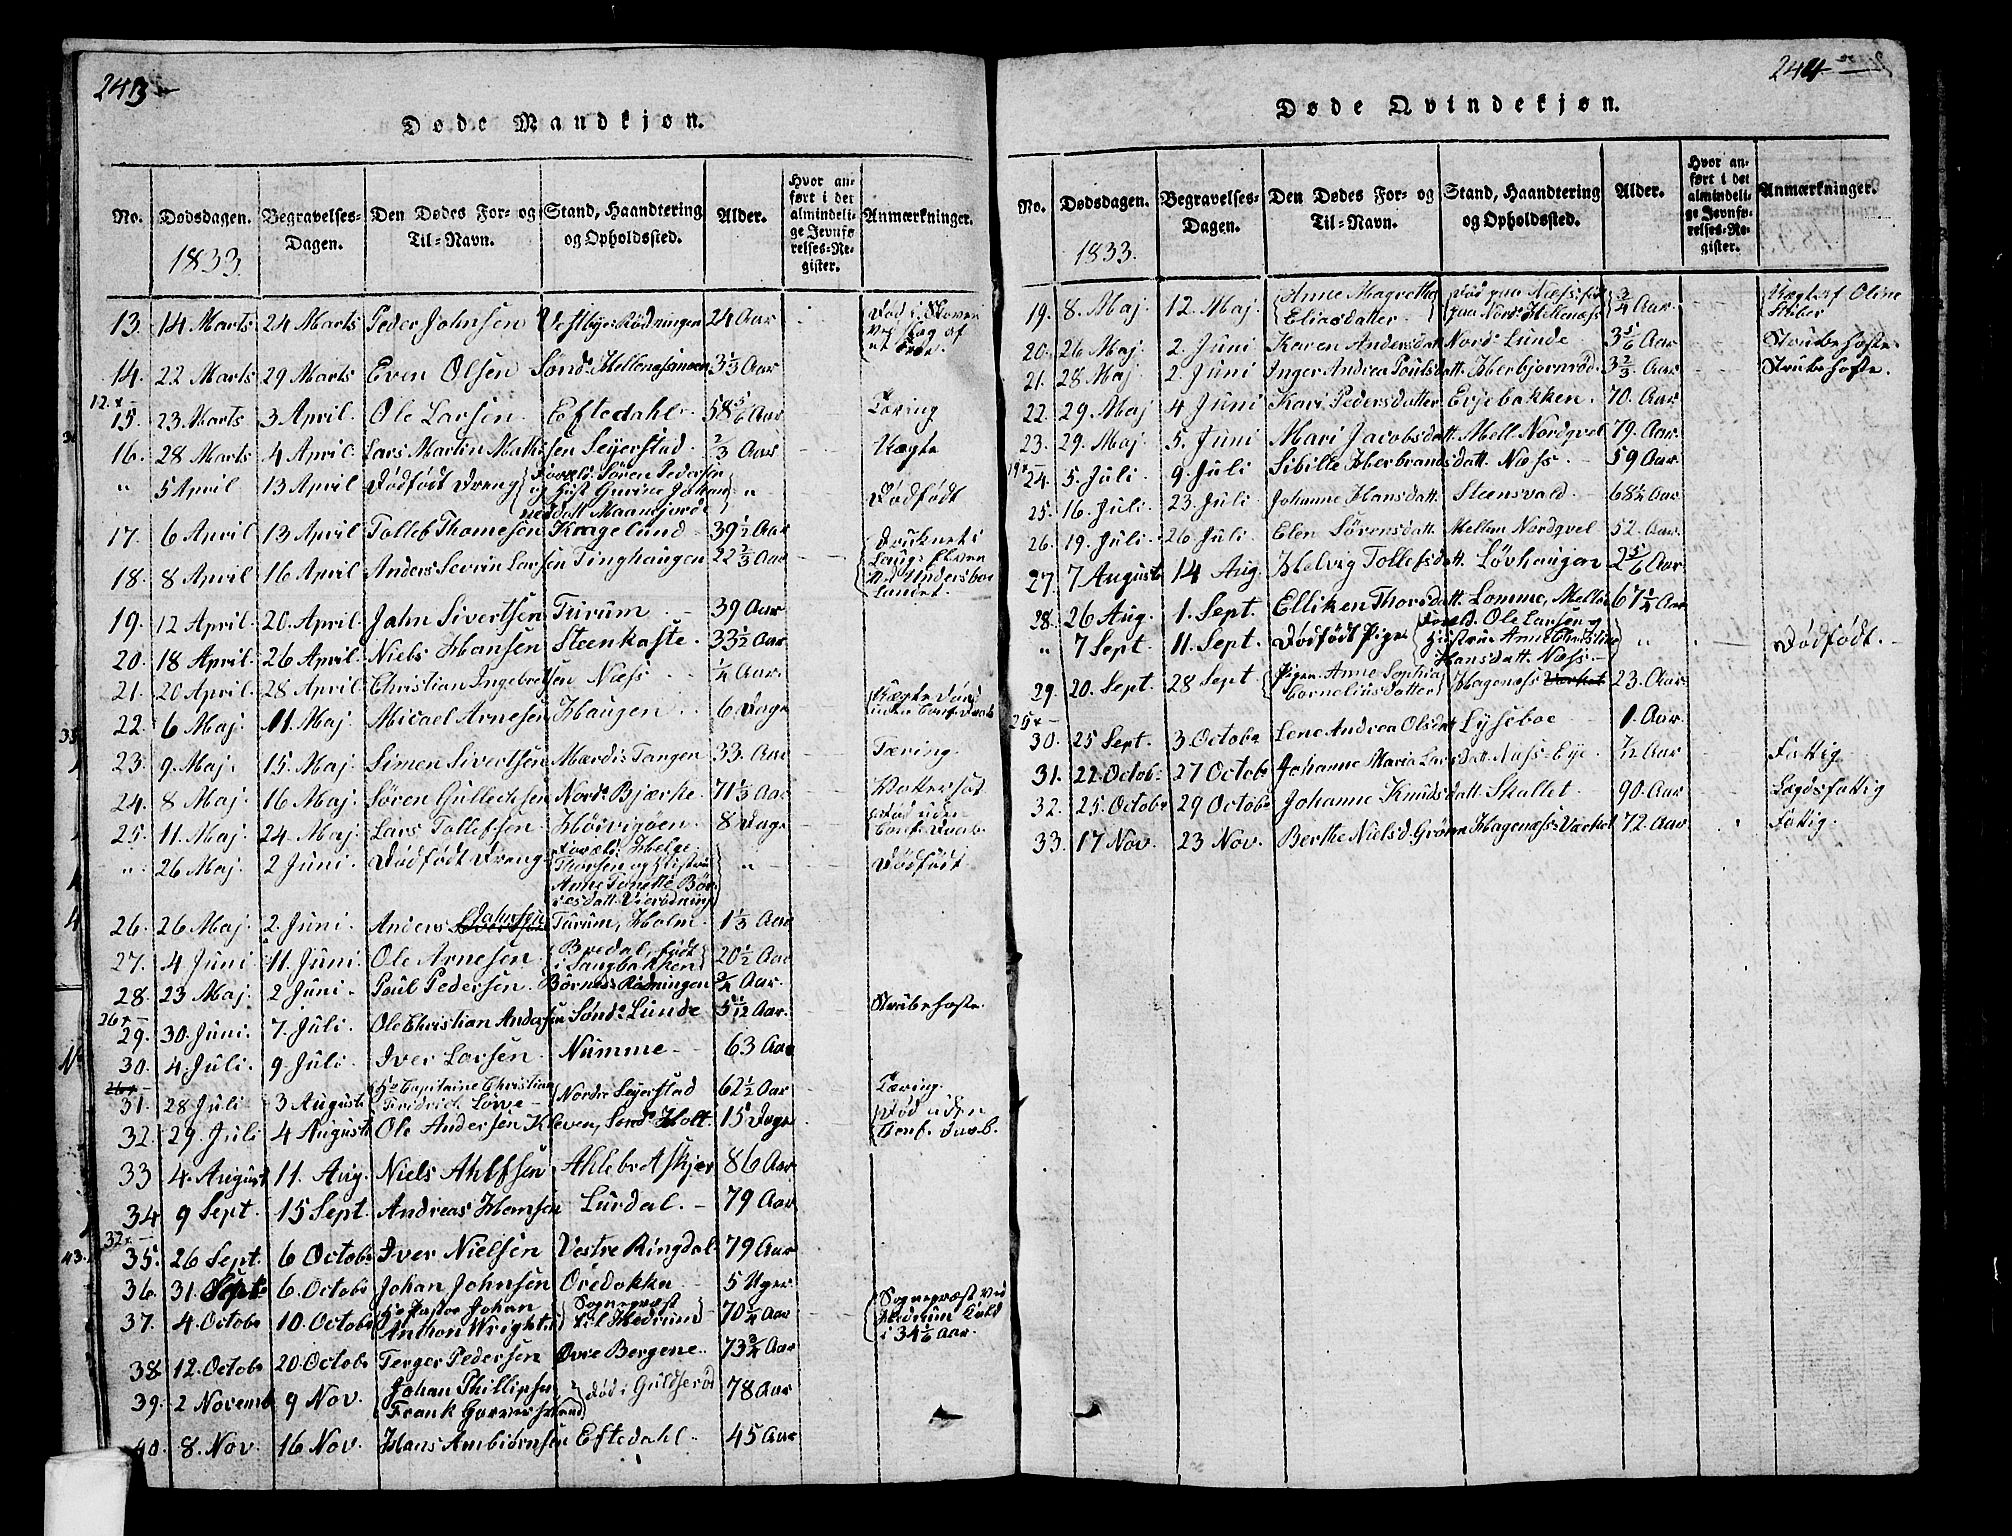 243
Døde Mandkjøn.
No. Dødsdagen. Begravelses-Dagen. Den Dødes For- og Til-Navn. Stand, Haandtering og Opholdssted. Alder. Hvor anført i det almindelige Jevnførelses-Register. Anmærkninger.
1833.
13. 14 Marts 24 Marts Peder Johnsen Vestbye Rødningen 24 Aar Død i Skoven ved Slag af et Træe.
14. 22 Marts 29 Marts Even Olsen Sønd. Hellenæssmoen 3 1/3 Aar
12+
15. 23 Marts 3 April. Ole Larsen Eftedahl 58 5/6 Aar Tæring.
16. 28 Marts 4 April. Lars Martin Mathisen Seyerstad 2/3 Aar Kægle
" 5 April 13 April Dødfødt Dreng Foræld. Sören Pedersen og Hust. Gurine Johannesdatt. " Dødfødt
17. 6 April 13 April Tollef Thomesen Krageland 39 1/2 Aar
18. 8 April 16 April Anders Severin Larsen Tinghaugen 22 2/3 Aar Druknet i Laugs Elven
19. 12 April 20 April Jahn Sivertsen Furum 39 Aar
20. 18 April 26 April Niels Hansen Steenkaste 33 1/2 Aar
21. 20 April 28 April Christian Ingebretsen Næss 1/4 Aar
22. 6 Maj. 11 Maj. Micael Arnesen Haugen 6 Dage
23. 9 Maj. 15. Maj. Simen Sivertsen Mærdis Tangen 33. Aar Tæring.
24. 8 Maj. 16 Maj. Søren Gullechsen Nord. Bjærke 71 1/3 Aar
25. 11. Maj. 24. Maj. Lars Tollefsen Høivigøen 8 Dage Død uden Conf. Daab.
" 26 Maj. 2 Juni. Dødfødt Dreng Foræld. Helge Thorsen og Hustru Anne Tonette " Dødfødt
26. 26 Maj. 2. Juni. Anders Jahnsen Furum, Holm 1 1/3 Aar
27. 4 Juni 11. Juni. Ole Arnesen Bredal, født i Sangbakken 20 1/2 Aar
28. 23 Maj. 2 Juni. Poul Pedersen Rødningen 3/4 Aar.
26+
29. 30. Juni. 7. Juli. Ole Christian Andersen Sønd. Lunde 5 5/12 Aar. Strubehoste.
30. 4 Juli. 9. Juli. Iver Larsen Numme 63 Aar
31. 28 Juli 3 August Hr. Capitaine Christian Fridrich Löwe Nordre Seyerstad 62 1/2 Aar Tæring.
32. 29. Juli 4 August Ole Andersen Kleven, Sønd. Holt. 15 Dage Død uden Conf. Daab.
33 4. August 11. Aug. Niels Ahlfsen 86 Aar
34 9 Sept. 15 Sept. Andreas Hansen Lurdal. 79 Aar
32+
35. 26 Sept. 6 Octobr Iver Nielsen Vestre Ringdal 79 Aar
36. 31. 6. Octobr Johan Johnsen Øredokka 5 Uger
37. 4. Octobr 10. Octobr Hr Pastor Johan Anthon Wright Sognepræst til Hedrum 70 1/4 Aar Sognepræst ved Hedrum Kald i 34 1/6 Aar.
38. 12. Octobr 20. Octobr Terger Pedersen Øvre Bergene. 73 3/4 Aar
39. 2 Novemb. 9 Nov. Johan Phillipsen Frank Død i Guldserød 78 Aar
40. 8. Nov. 16 Nov. Hans Ambiørnsen Eftedahl. 45 Aar
244
Døde Qvindekjøn.
No. Dødsdagen. Begravelses-Dagen. Den Dødes For- og Til-Navn. Stand, Haandtering og Opholdssted. Alder. Hvor anført i det almindelige Jevnførelses-Register. Anmærkninger.
1833.
19. 8. Maj. 12. Maj. Anne Magrethe Eliasdatter. Død paa Næss, 3/4 Aar
20. 26 Maj. 2. Juni Karen Andersdatt. Nord. Lunde 3 5/6 Aar Strubehoste.
21. 28 Maj. 2. Juni Inger Andrea Poulsdatt. Herbjørnrød. 3 2/3 Aar Strubehoste.
22. 29. Maj 4. Juni Kari Pedersdatter Eyebakken. 70. Aar
23. 29. Maj. 5. Juni Mari Jacobsdatt. Mell. Nordqvel 79. Aar.
19+
24. 5. Juli. 9. Juli Sibille Herbrandsdatt. Næss. 59 Aar
25. 16. Juli. 23. Juli Johanne Hansdatt. Steensvald. 68 1/4 Aar
26. 19. Juli 26 Juli. Elen Sørensdatt. Mellem Nordqvel 52. Aar
27. 7 August 14 Aug. Helvig Tollefsdatt. Løvhaugen 2 5/6 Aar
28. 26 Aug. 1. Sept. Elliken Thorsdatt. Lomme, Mellem 67 1/4 Aar
" 7 Sept. 11. Sept. Dødfødt Pige Foræld. Ole Larsen og Hustrue Anne Christine Hansdatt. Næss. " Dødfødt.
29. 20. Sept. 28 Sept Pigen Anne Sophia Corneliusdatter Hagenæss 23. Aar
25+
30. 25 Sept. 3 Octobr Lene Andrea Olsdatt. Lyseboe 1. Aar
31. 22 Octob. 27 Octob. Johanne Maria Larsdatt. Næss-Eye. 1/2 Aar Fattig.
32. 25. Octobr 29 Octobr Johanne Knudsdatt. Skallet 90. Aar Lægdsfattig
33. 17 Nov. 23 Nov. Berthe Nielsd. Hagenæss Værket 72. Aar Fattig.